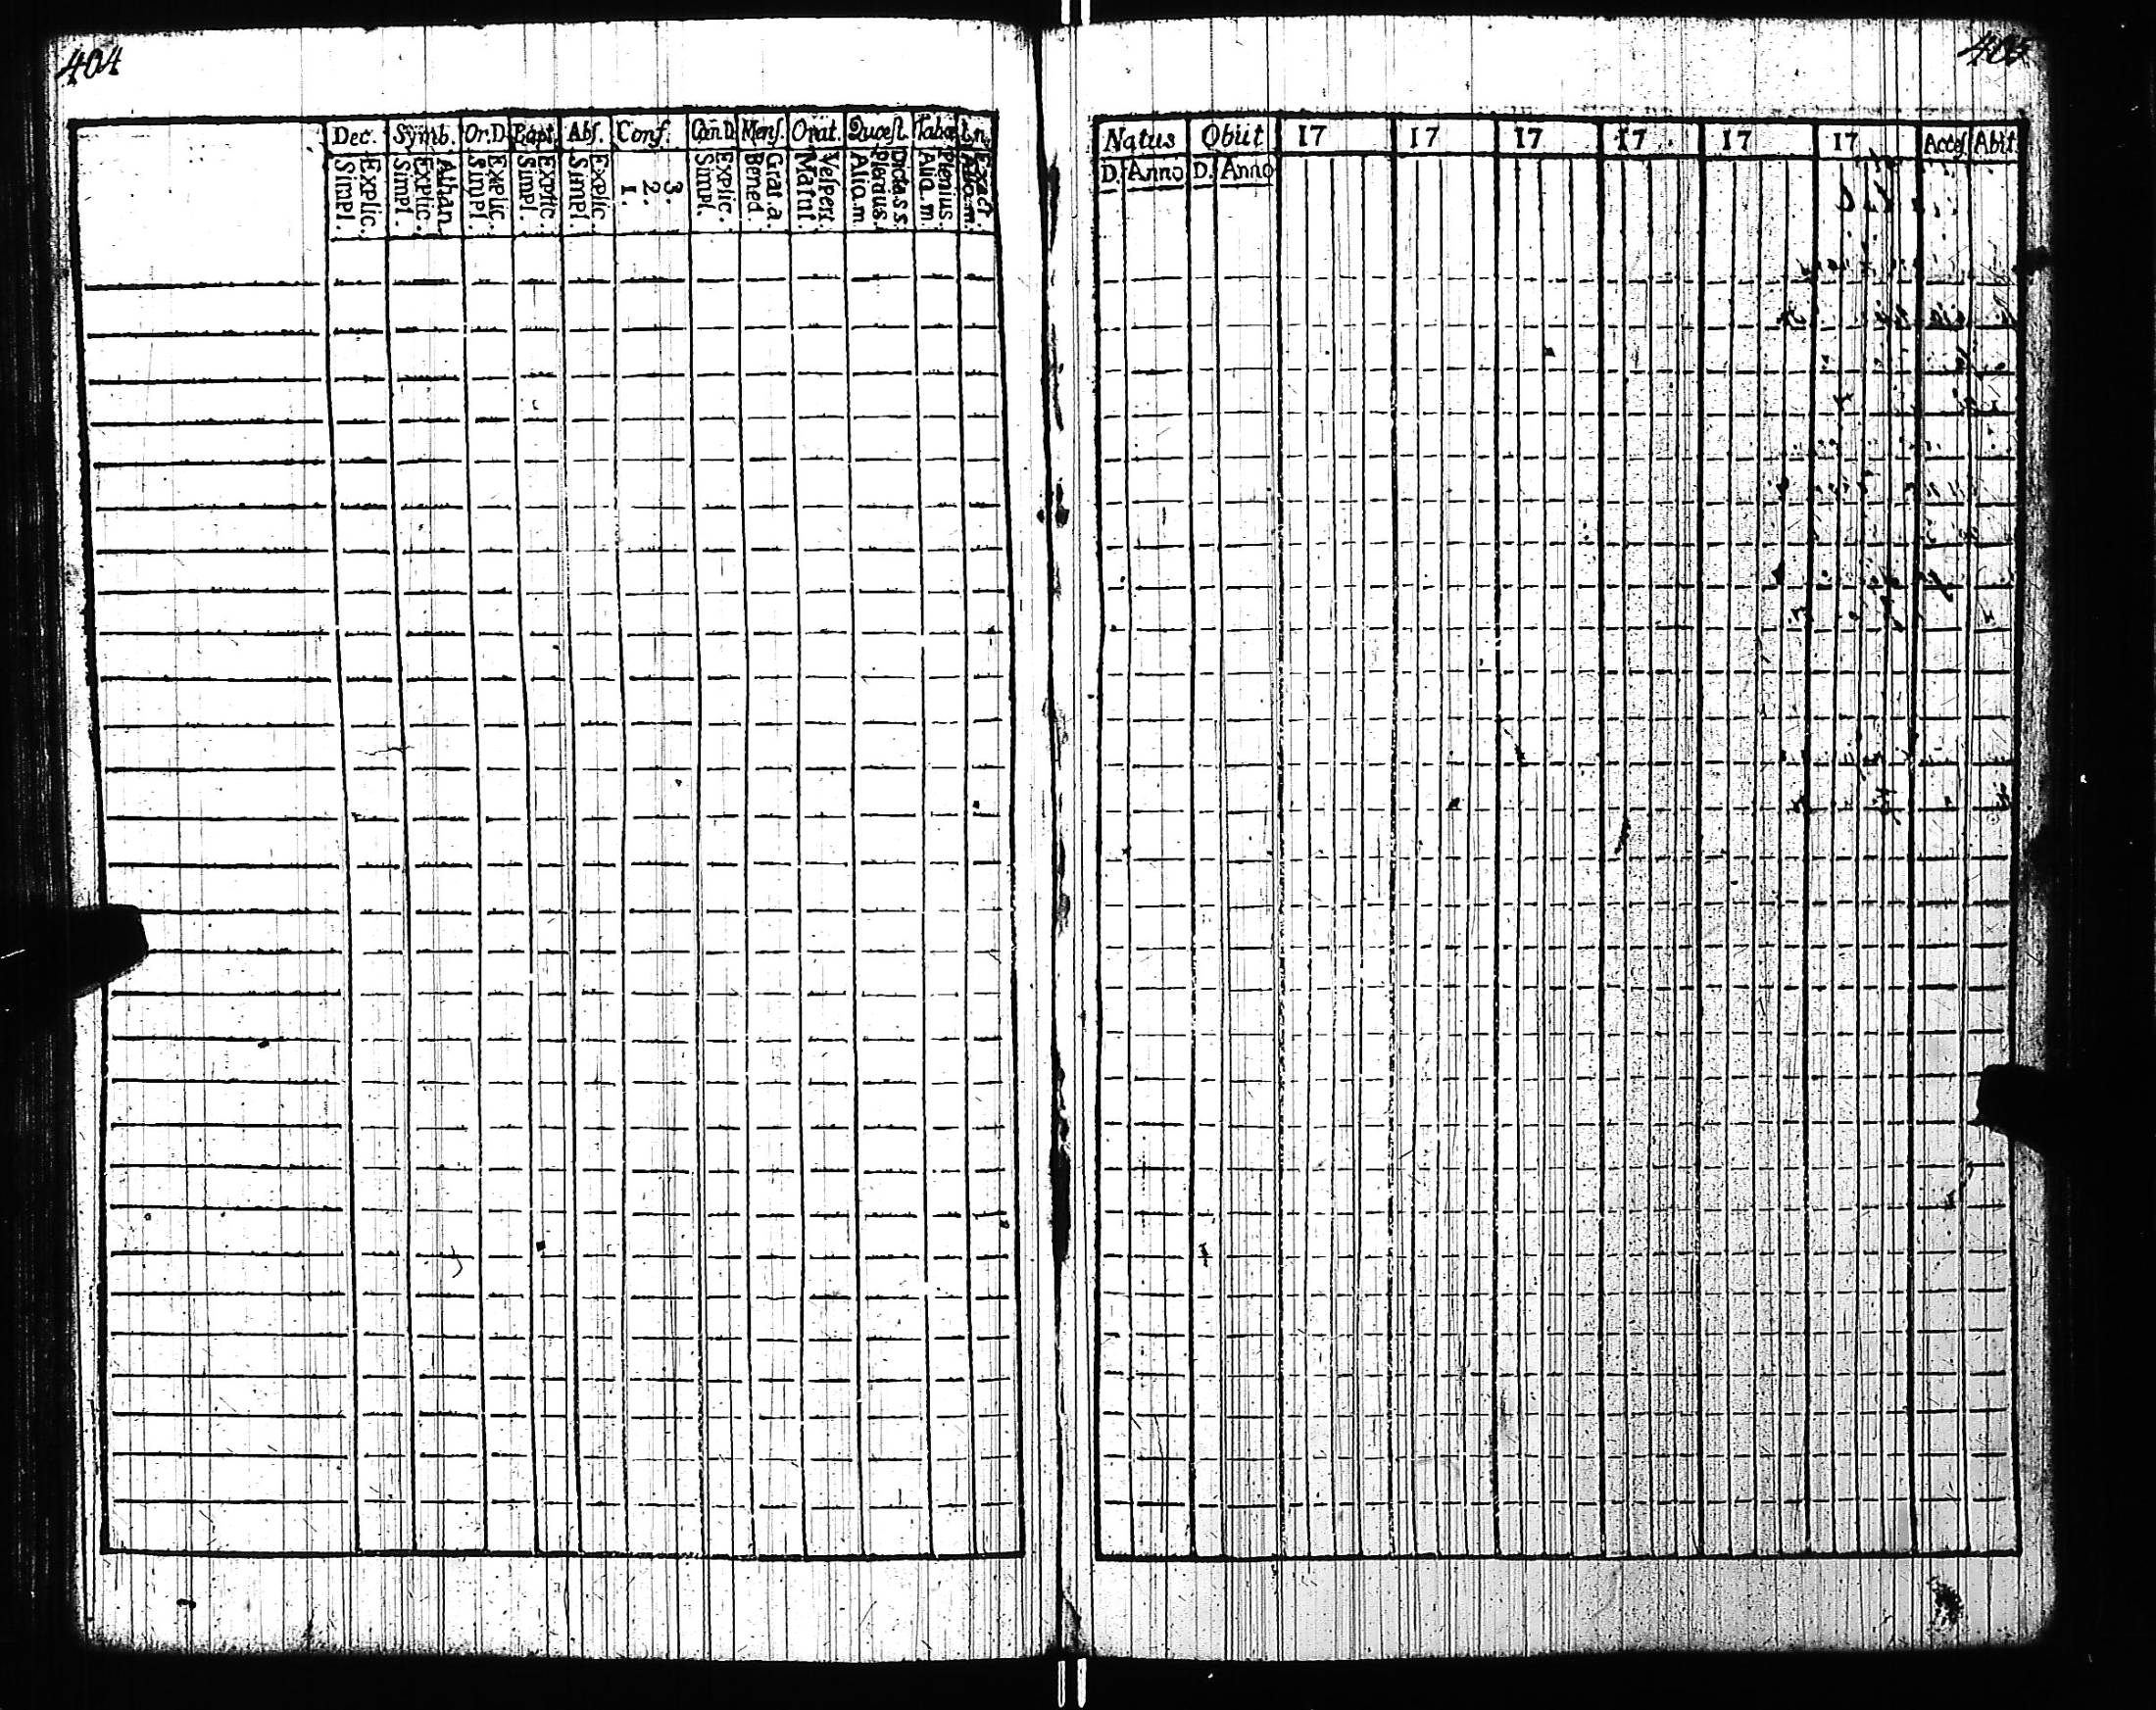 404
Dec. Symb. Or.D. Bapt. Abs. Conf. Can.D. Mens. Orat. Quæst. Tabæ
Explic. Simpl.
Athan. Explic. Simpl.
Explic. Simpl.
Explic. Simpl.
Explic. Simpl.
3. 2. 1.
Explic. Simpl.
Grat.a. Bened.
Vespert. Matut.
Dicta.s.s. Pleraus. Aliq.m.
Plenius. Aliq.m.
405
Natus Obiit 17 17 17 17 17 17 Acces. Abit
D. Anno D. Anno